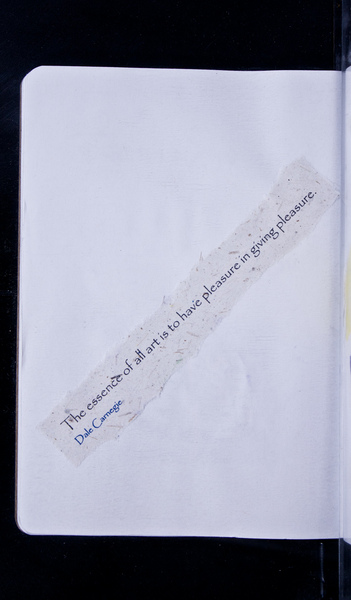 The essence of all art is to have pleasure in giving pleasure.
Dale Carnegie.